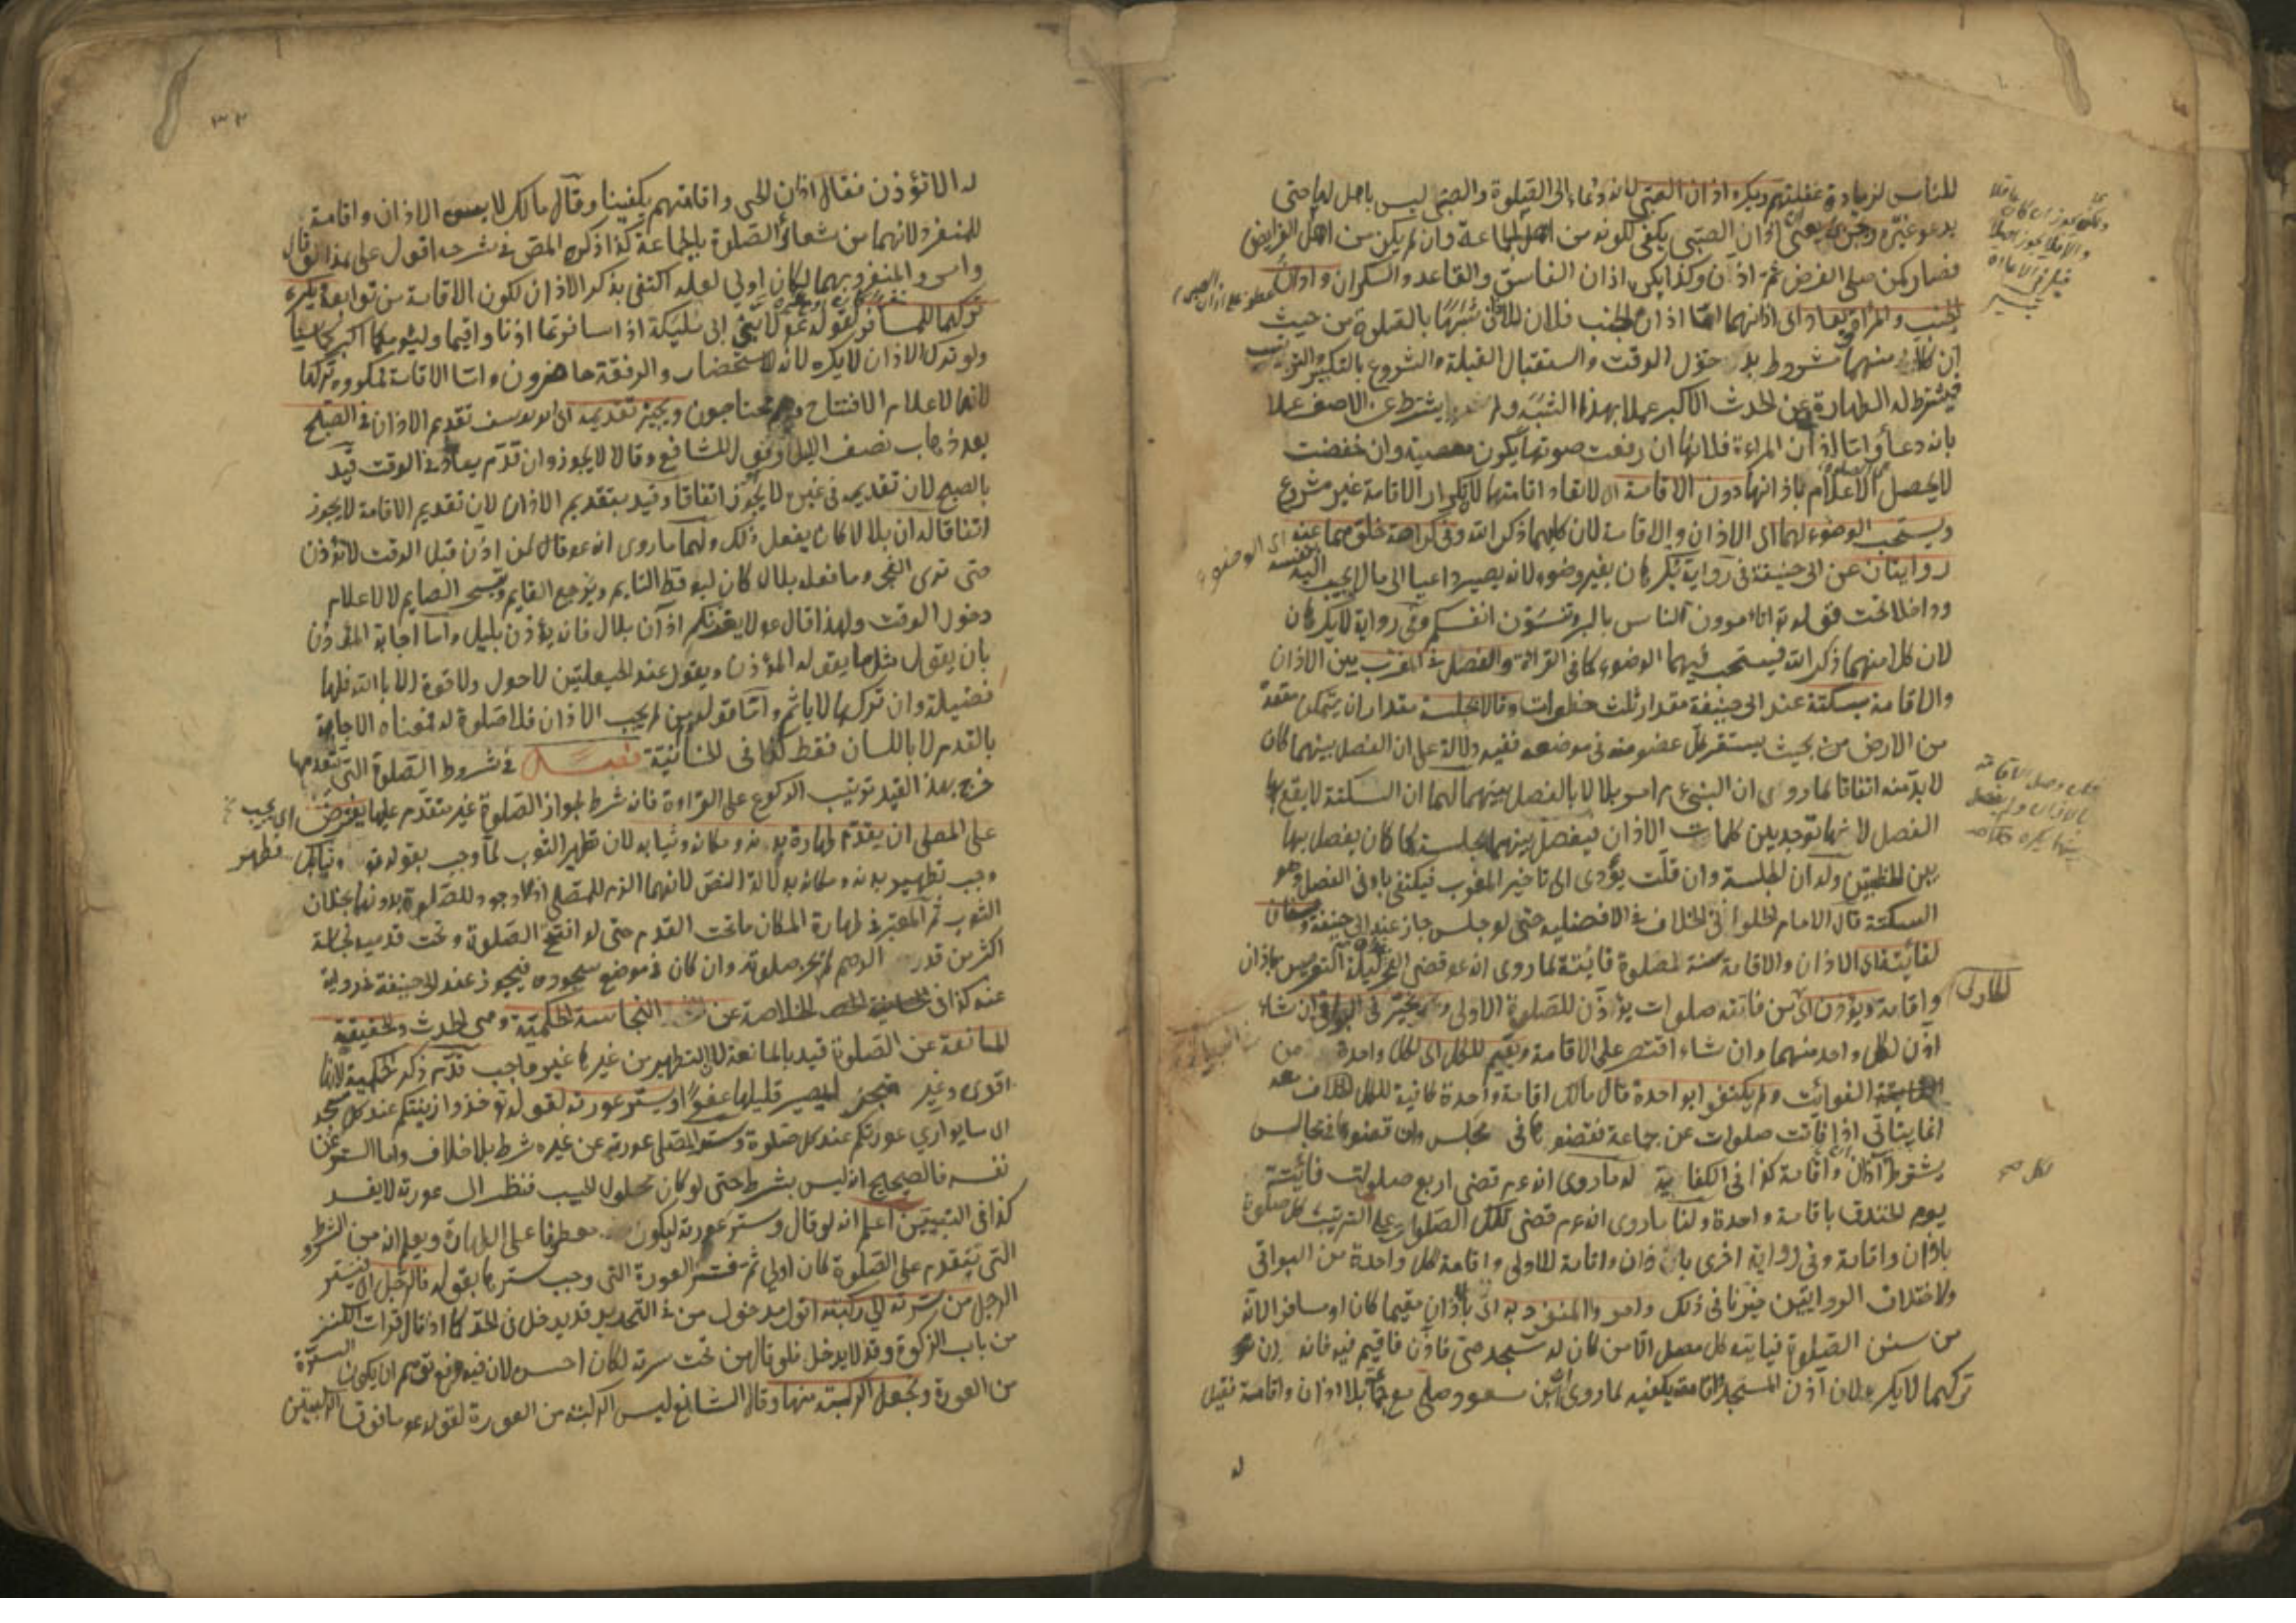 للناس لزيادة غفلتهم ويكره اذان الصبي لانه دعاء الى الصلوة والصبي ليس باهل لها حتى
يدعو غيره اذان الصبي يكفي لكونه من اهل الجماعة وان لم يكن من اهل الفرايض
فصار كمن صلى الفرض ثم اذن وكذا يكره اذان الفاسق والقاعد والسكران واذان
الجنب والمراة ويعاد اى اذانهما اما اذان الجنب فلان للاذان شبها بالصلوة من حيث
ان كلا منهما مشروط بدخول الوقت واستقبال القبلة والشروع بالتكبير والترتيب
فيشترط له الطهارة عن الحدث الاكبر عملا بهذا الشبه ولم يشترط عن الاصغر عملا
بانه دعاء واما اذان المراءة فلانها ان رفعت صوتها يكون معصية وان خفضت
لا يحصل الاعلام باذانها دون الاقامة اى لا تعاد اقامتها لان تكرار الاقامة غير مشروع
ويستحب الوضوء لهما اى الاذان والاقامة لان كليهما ذكر الله وفي كراهة خلوهما عنه
روايتان عن ابى حنيفة فى رواية يكرهان بغير وضوء لانه يصير داعيا الى ما لا يجيب اليه بنفسه
وداخلا تحت قوله تع اتامرون الناس بالبر وتنسون انفسكم وفي رواية لا يكرهان
لان كلا منهما ذكر الله فيستحب فيهما الوضوء كما فى القراءة والفصل فى المغرب بين الاذان
والاقامة بسكتة عند ابى حنيفة مقدار ثلث خطوات وقالا بجلسة مقدار ان يتمكن مقعده
من الارض من بحيث يستقر كل عضو منه فى موضعه ففيه دلالة على ان الفصل بينهما كان
لا بد منه اتفاقا لما روى ان النبى ع م امر بلالا بالفصل بينهما لهما ان السكتة لا يقع بها
الفصل لانها توجد بين كلمات الاذان فيفصل بينهما بجلسة كما كان يفصل بها
بين الخطبتين وله ان الجلسة وان قلت يؤدى الى تاخير المغرب فيكتفى بادنى الفصل وهو
السكتة قال الامام الحلوانى الخلاف فى الافضلية حتى لو جلس جاز عند ابى حنيفة ويسنان
لفائتة اى الاذان والاقامة سنة لصلوة فائتة لما روى انه ع م قضى الفجر ليلة التعريس باذان
واقامة ويؤذن اى من فاتته صلوات يؤذن للصلوة الاولى ويخير فى البواقى ان شاء
اذن لكل واحد منهما وان شاء اقتصر على الاقامة ويقيم للكل اى لكل واحدة من
الفوائت ولم يكتفوا بواحدة قال مالك اقامة واحدة كافية للكل الخلاف
انما يتاتى اذا فاتت صلوات عن جماعة فقضوها فى مجلس وان قضوها فى مجالس
يشترط اذان واقامة كذا فى الكفاية له ما روى انه ع م قضى اربع صلوات فائتة
يوم الخندق باقامة واحدة ولنا ما روى انه ع م قضى تلك الصلوات على الترتيب كل صلوة
باذان واقامة وفى رواية اخرى باذان واقامة للاولى واقامة لكل واحدة من البواقى
ولاختلاف الروايتين خيرنا فى ذلك وامر والمنفرد به اى باذان مقيما كان او مسافرا لانه
من سنن الصلوة فياتيه كل مصل الا من كان له مسجد حتى فاذن فاقيم فيه فانه ان
تركهما لا يكره لان اذن المسجد واقامته يكفيه لما روى ابن مسعود صلى مع جماعة بلا اذان واقامة فقيل
له
اى الوضوء
فلو وصل الاقامة
بالاذان ولم يفصل
بينهما يكره
لكل صح
٣٢
له الا تؤذن فقال اذان الحى واقامتهم يكفينا وقال مالك لا يسن الاذان واقامة
للمنفرد لانهما من شعائر الصلوة بالجماعة كذا ذكره المص فى شرحه اقول على هذا لو قال
وامر والمنفرد بهما لكان اولى لعله اكتفى بذكر الاذان لكون الاقامة من توابعه يكره
تركهما للمسافر لقوله ع م لابنى ابى مليكة اذا سافرتما اذنا واقيما وليؤمكما اكبركما سنا
ولو ترك الاذان لا يكره لانه للاستحضار والرفقة حاضرون واما الاقامة فمكروه تركها
لانها لاعلام الافتتاح وهم محتاجون ويجيز تقديمه اى ابو يوسف تقديم الاذان فى الصبح
بعد ذهاب نصف الليل وهو قول الشافعى وقالا لا يجوز وان قدم يعاد فى الوقت قيد
بالصبح لان تقديمه فى غيره لا يجوز اتفاقا وقيد بتقديم الاذان لان تقديم الاقامة لا يجوز
اتفاقا له ان بلالا كان يفعل ذلك ولهما ما روى انه ع م قال لمن اذن قبل الوقت لا تؤذن
حتى ترى الفجر وما فعله بلال كان ليوقظ النايم ويرجع القايم ويتسحر الصايم لا لاعلام
دخول الوقت ولهذا قال ع م لا يغرنكم اذان بلال فانه يؤذن بليل واما اجابة المؤذن
بان يقول مثل ما يقوله المؤذن ويقول عند الحيعلتين لا حول ولا قوة الا بالله فلها
فضيلة وان تركها لا ياثم واما قوله من لم يجب الاذان فلا صلوة له فمعناه الاجابة
بالقدم لا باللسان فقط كذا فى الخانية فصل فى شروط الصلوة التى تتقدمها
خرج بهذا القيد ترتيب الركوع على القراءة فانه شرط لجواز الصلوة غير متقدم عليها يفترض اى يجب
على المصلى ان يقدم طهارة بدنه ومكانه وثيابه لان تطهير الثوب لما وجب بقوله تع وثيابك فطهر
وجب تطهير بدنه ومكانه بدلالة النص لانهما الزم للمصلى اذ لا وجود للصلوة بدونهما بخلاف
الثوب ثم المعتبر فى طهارة المكان ما تحت القدم حتى لو افتتح الصلوة وتحت قدميه نجاسة
اكثر من قدر الدرهم لم يجز صلوته وان كان فى موضع سجوده فيجوز عند ابى حنيفة فى رواية
عنه كذا فى الخلاصة عن النجاسة الحكمية وهى الحدث والحقيقية
المانعة عن الصلوة قيد بالمانعة لان التطهير من غيرها غير واجب قدم ذكر الحكمية لانها
اقوى وستر عورته لقوله تع خذوا زينتكم عند كل مسجد
اى ما يوارى عورتكم عند كل صلوة وستر المصلى عورته عن غيره شرط بلا خلاف واما الستر عن
نفسه فالصحيح انه ليس بشرط حتى لو كان محلول الجيب فنظر الى عورته لا يفسد
كذا فى التبيين اعلم انه لو قال وستر عورته ليكون معطوفا على الطهارة ويعلم انه من الشروط
التى يتقدم على الصلوة كان اولى ثم فسر العورة التى وجب سترها بقوله فالرجل اى فيستر
الرجل من سرته الى ركبته اقول مدخول من فى التحديد قد يدخل فى الحد كما اذا قال قرات الكنز
من باب الزكوة وقد لا يدخل فلو قال من تحت سرته لكان احسن لان فيه دفع توهم ان يكون السرة
من العورة ونجعل الركبة منها وقال الشافعى ليس الركبة من العورة لقوله ع م ما فوق الركبتين